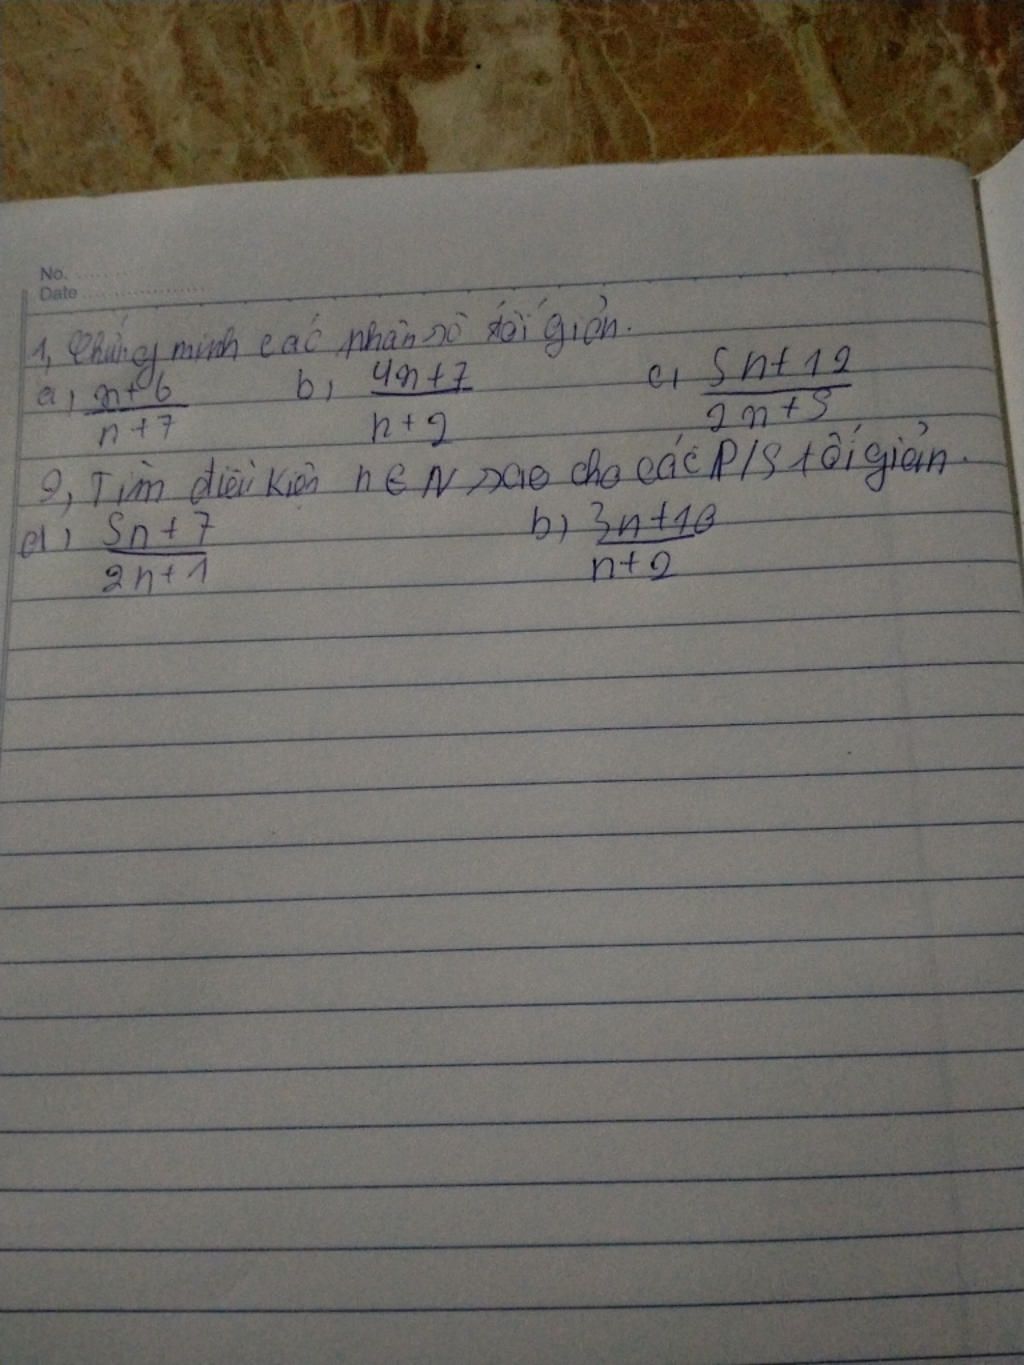 No.
Date
1, Chứng minh các phân số tối giản.
a, n+6/n+7 b, 4n+7/n+2 c, 5n+12/2n+5
2, Tìm điều kiện n ∈ N sao cho các P/S tối giản.
a, 5n+7/2n+1 b, 3n+10/n+2